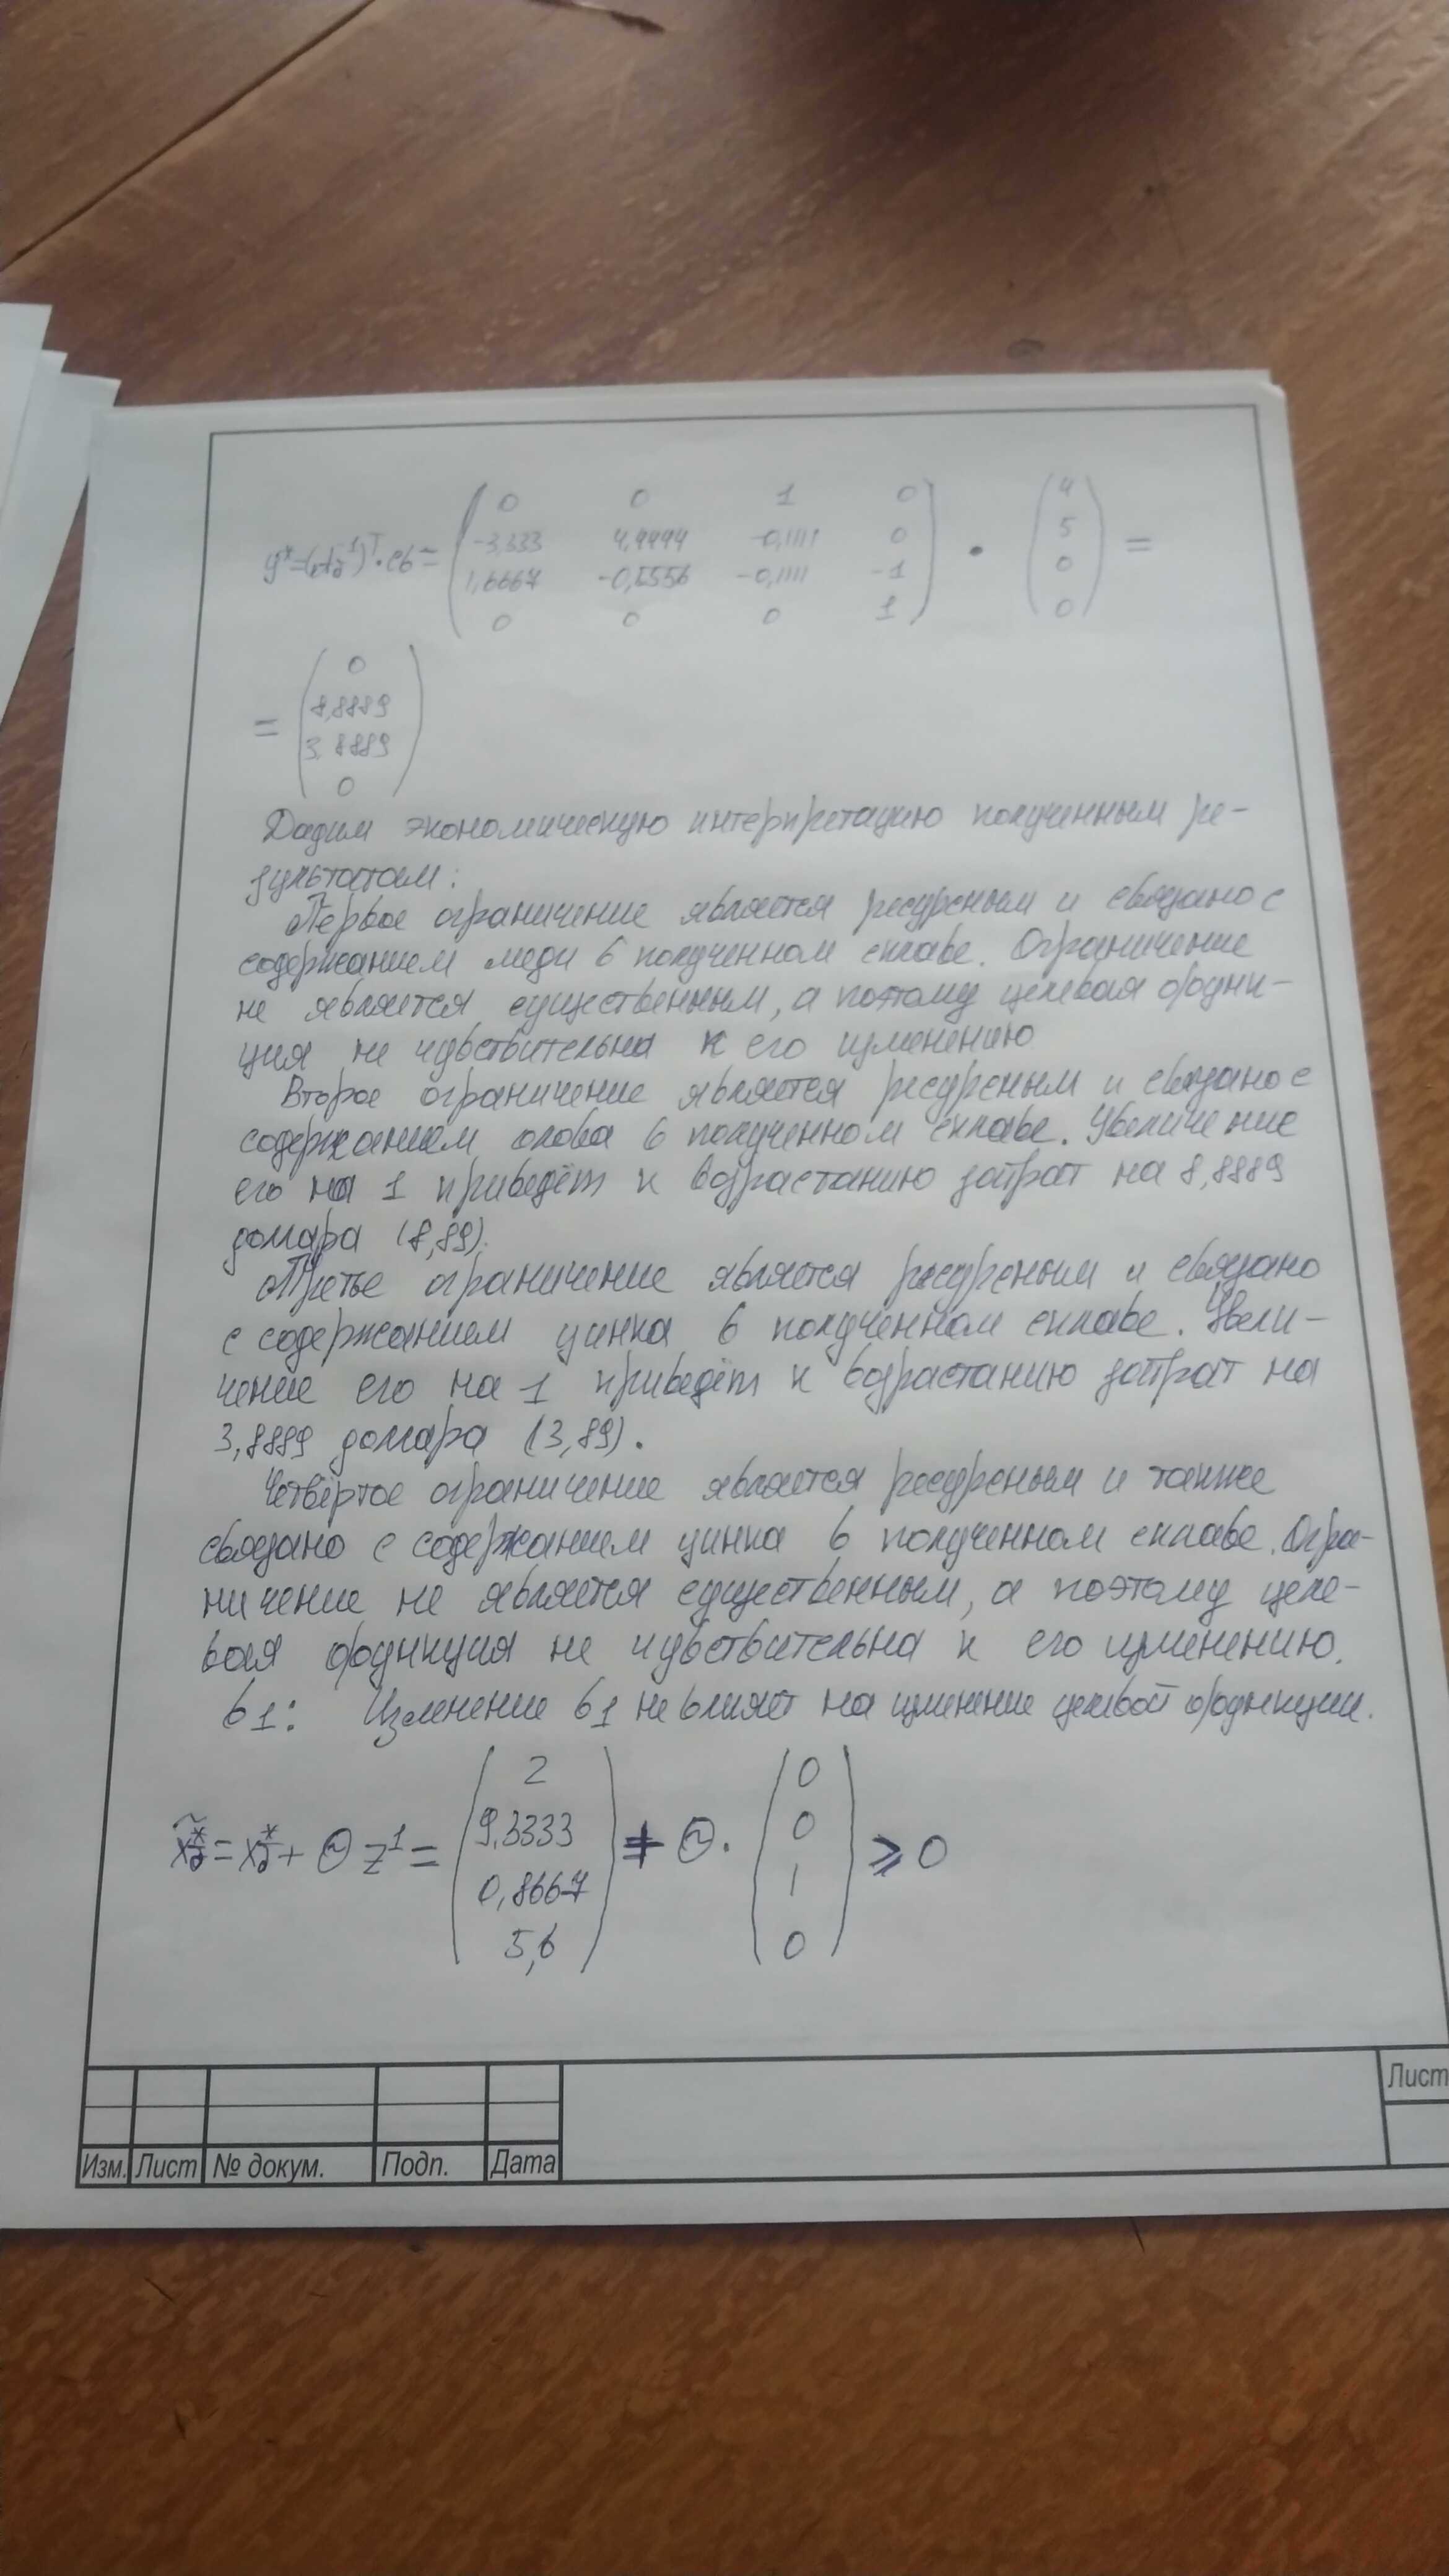 y* = (Aб⁻¹)ᵀ · cб = ( 0 0 1 0 ) · ( 4 ) =
( -3,333 4,4444 -0,1111 0 ) ( 5 )
( 1,6667 -0,5556 -0,1111 -1 ) ( 0 )
( 0 0 0 1 ) ( 0 )
= ( 0 )
( 8,8889 )
( 3,8889 )
( 0 )
Дадим экономическую интерпретацию полученным ре-
зультатам:
Первое ограничение является ресурсным и связано с
содержанием меди в полученном сплаве. Ограничение
не является существенным, а поэтому целевая функ-
ция не чувствительна к его изменению
Второе ограничение является ресурсным и связано с
содержанием олова в полученном сплаве. Увеличение
его на 1 приведёт к возрастанию затрат на 8,8889
доллара (8,89).
Третье ограничение является ресурсным и связано
с содержанием цинка в полученном сплаве. Увели-
чение его на 1 приведёт к возрастанию затрат на
3,8889 доллара (3,89).
Четвёртое ограничение является ресурсным и также
связано с содержанием цинка в полученном сплаве. Огра-
ничение не является существенным, а поэтому целе-
вая функция не чувствительна к его изменению.
b1: Изменение b1 не влияет на изменение целевой функции.
x̃б* = xб* + Θ z¹ = ( 2 ) + Θ · ( 0 ) ⩾ 0
( 9,3333 ) ( 0 )
( 0,8667 ) ( 1 )
( 5,6 ) ( 0 )
Лист
Изм. Лист № докум. Подп. Дата